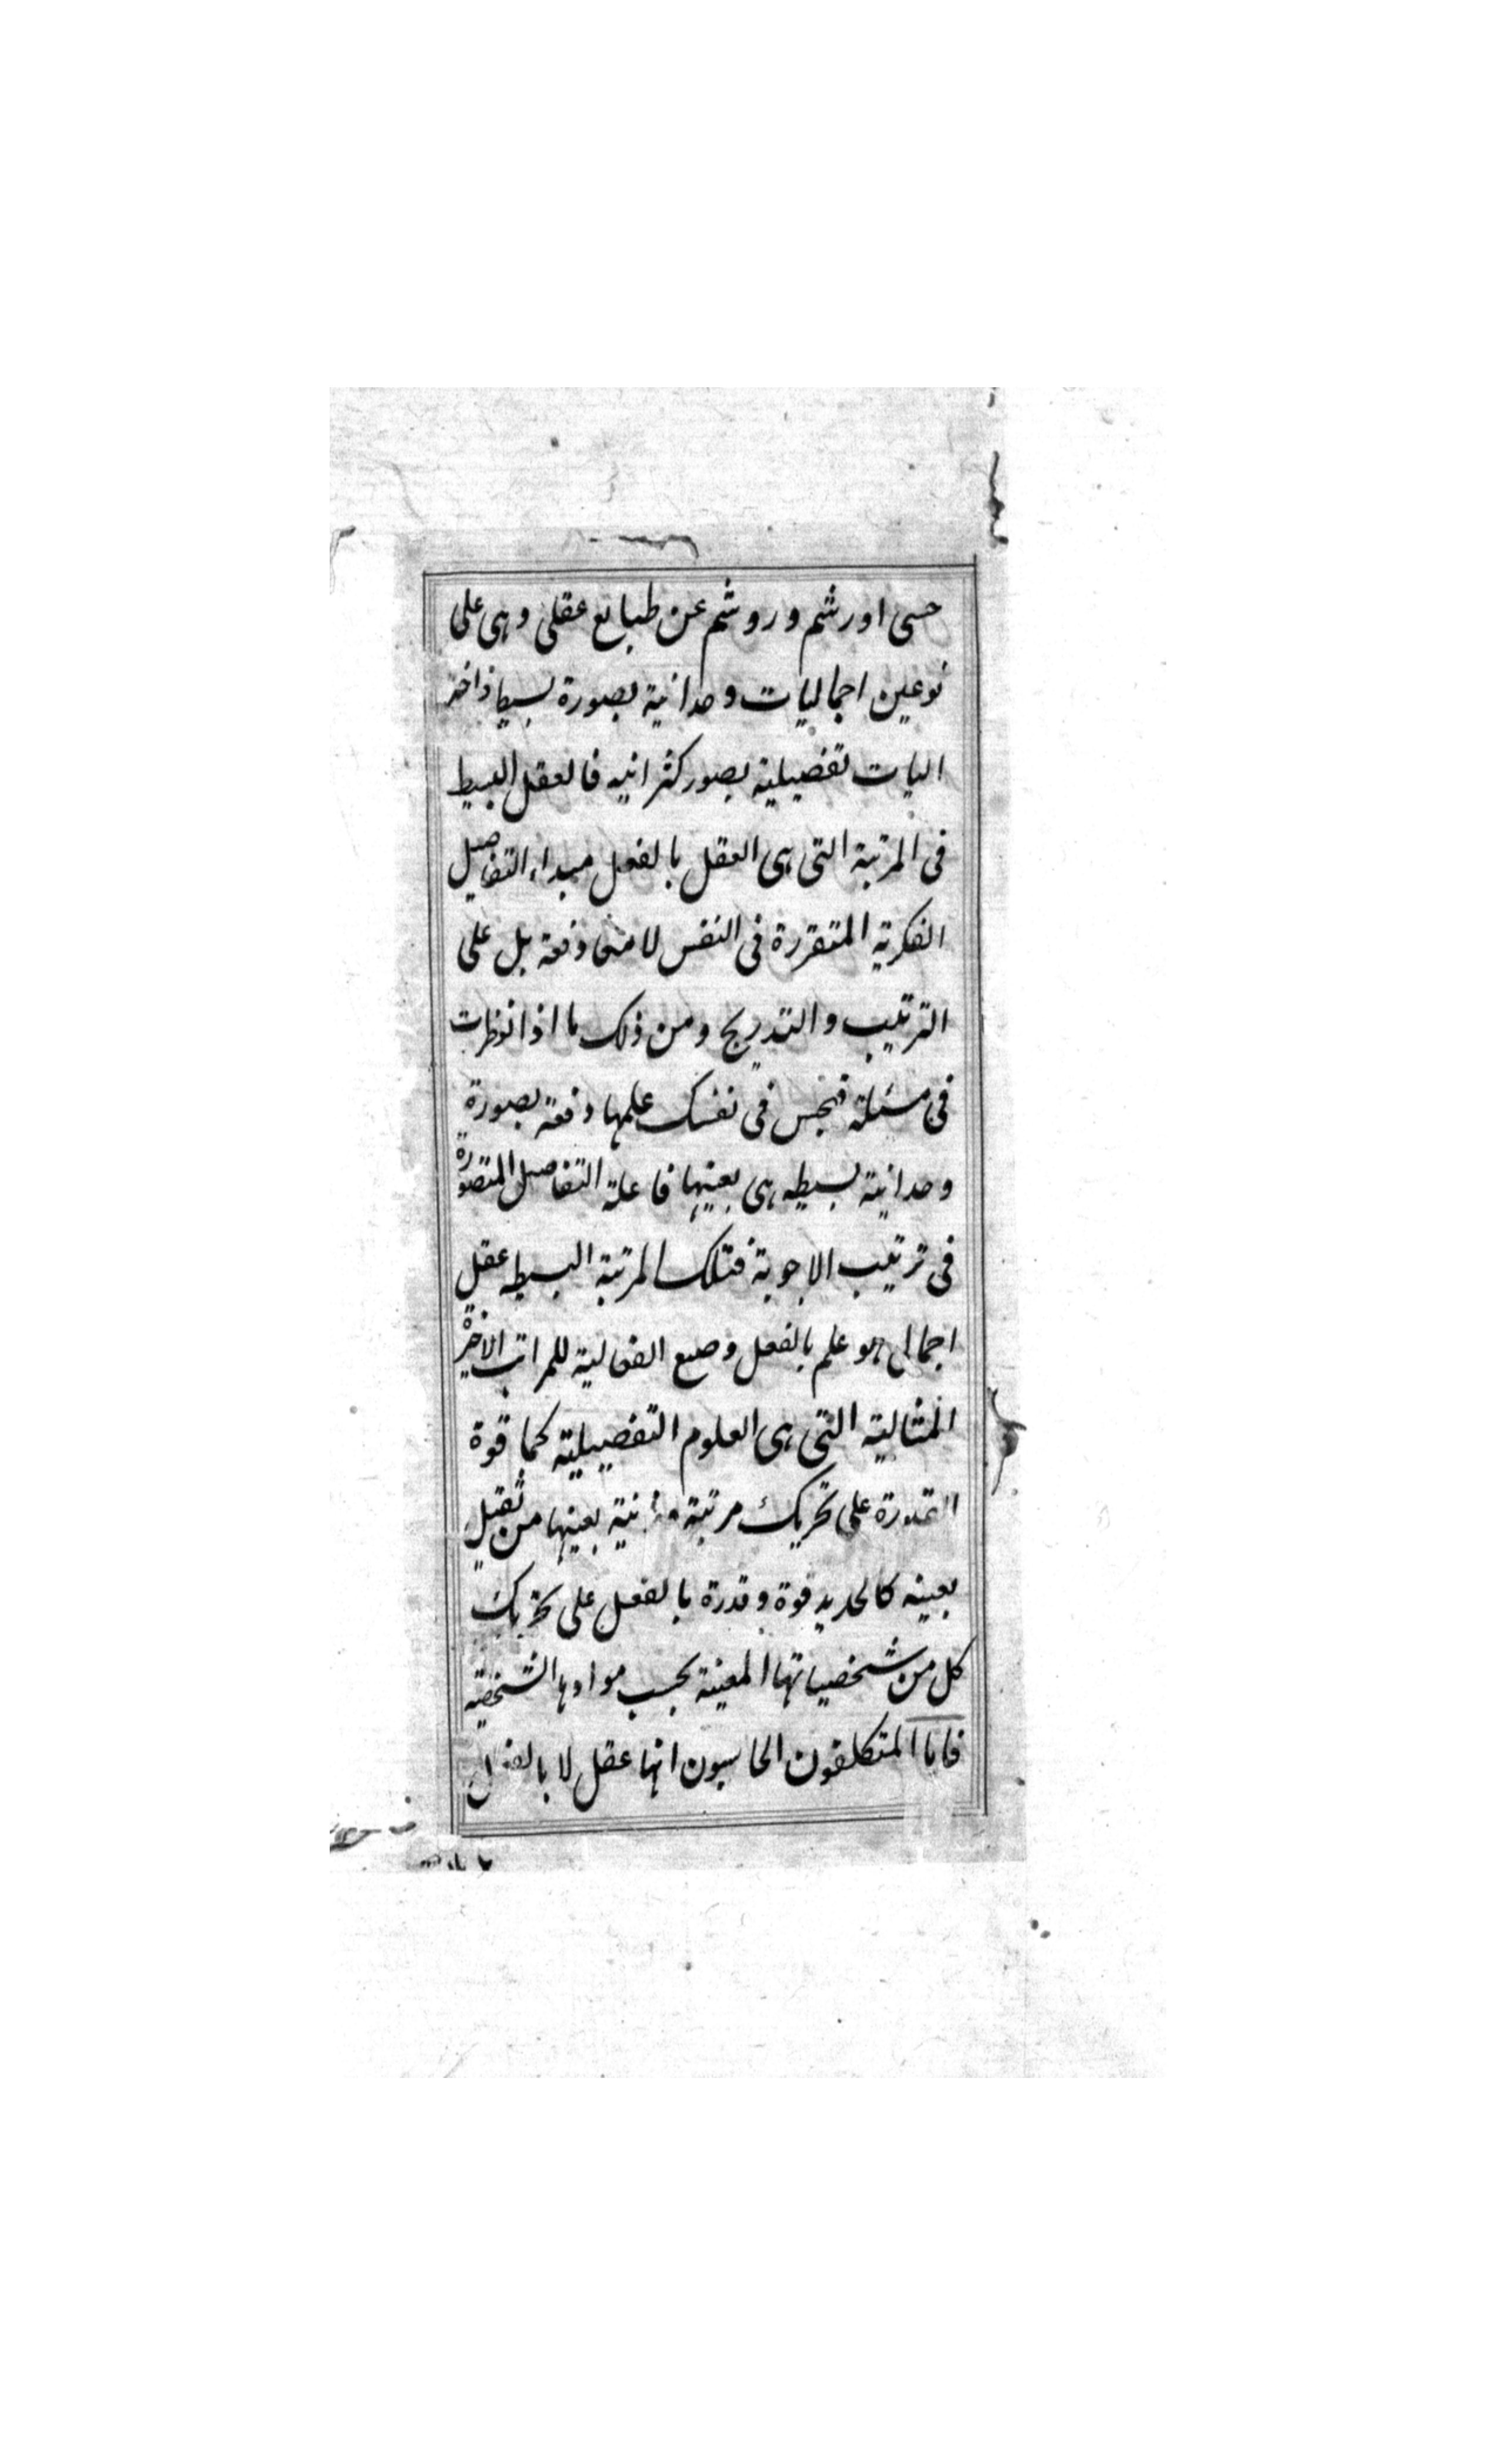 حسی او رشم و روشم عن طبایع عقلی وهی علی
نوعین اجمالیات وحدانیة بصورة بسیط
الیات تفضیلیة بصور کثرانیه فالعقل البسیط
فی المرتبة التی هی العقل بالفعل مبداء التفاصیل
الفکریة المتقررة فی النفس لا دفعة بل علی
الترتیب والتدریج ومن ذلک ما اذا نوظرت
فی مسئلة فتجس فی نفسک علمها دفعة بصورة
وحدانیة بسیطه هی بعینها فاعلة التفاصیل المتصورة
فی ترتیب الاجوبة فتلک المرتبة البسیطه عقل
اجمالی هو علم بالفعل و الفعالیة للمراتب الاخیرة
المثالیة التی هی العلوم التفضیلیة کما قوة
القدرة علی تحریک مرتبة بعینها من ثقیل
بعینه کالحدید قوة وقدرة بالفعل علی تحریک
کل من شخصیاتها المعینة بحسب موادها الشخصیة
فاما المتکلفون الحاسبون انها عقل لا بالفعل